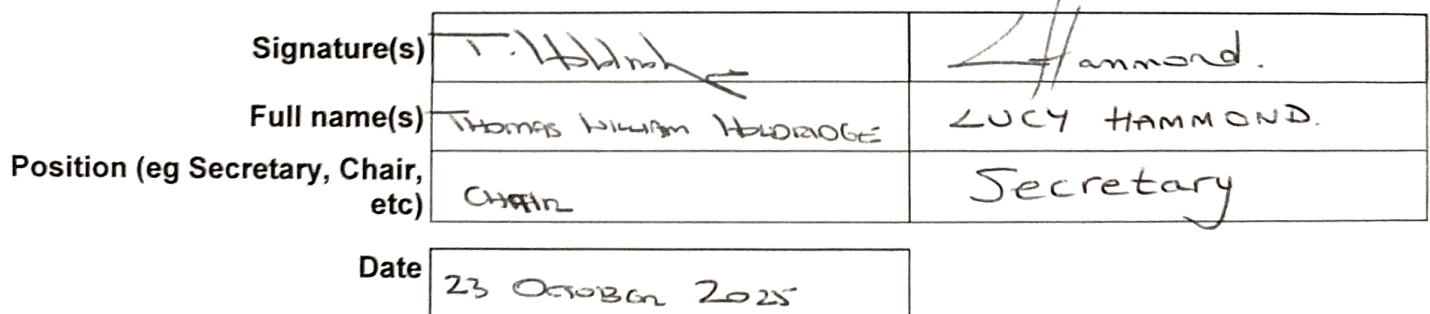 Signature(s) T. Holdridge LHammond.
Full name(s) THOMAS WILLIAM HOLDRIDGE LUCY HAMMOND.
Position (eg Secretary, Chair,
etc) CHAIR Secretary
Date 23 OCTOBER 2025